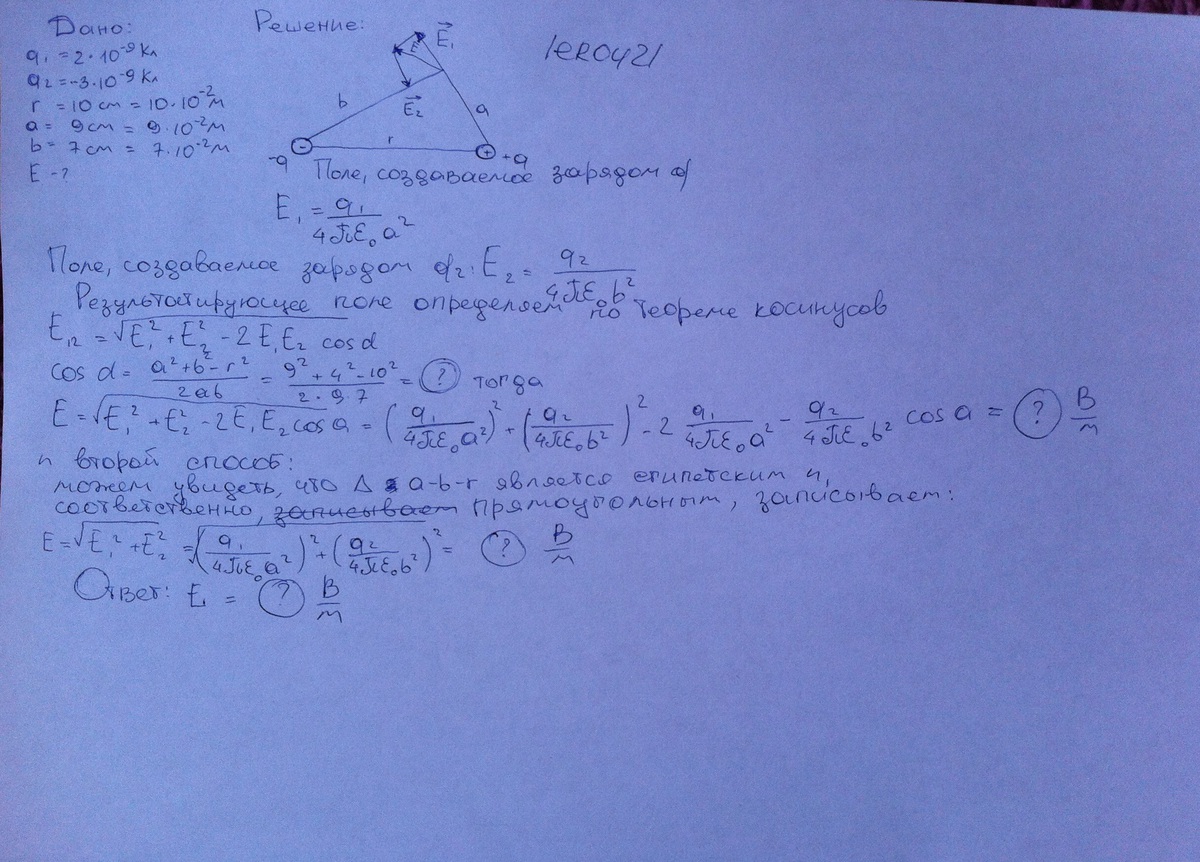 Дано:
q₁ = 2·10⁻⁹ Кл
q₂ = -3·10⁻⁹ Кл
r = 10 см = 10·10⁻² м
a = 9 см = 9·10⁻² м
b = 7 см = 7·10⁻² м
E - ?
Решение:
leRO421
E₁
E
E₂
b
a
r
-q
+q
Поле, создаваемое зарядом q₁
E₁ = q₁/4πε₀a²
Поле, создаваемое зарядом q₂: E₂ = q₂/4πε₀b²
Результатирующее поле определяем по теореме косинусов
E₁₂ = √E₁² + E₂² - 2E₁E₂ cos α
cos α = a² + b² - r²/2ab = 9² + 4² - 10²/2·9·7 = ? тогда
E = √E₁² + E₂² - 2E₁E₂ cos a = (q₁/4πε₀a²)² + (q₂/4πε₀b²)² - 2 q₁/4πε₀a² - q₂/4πε₀b² cos a = ? В/м
и второй способ:
можем увидеть, что Δ a-b-r является египетским и,
соответственно, записывает прямоугольным, записывает:
E = √E₁² + E₂² = √(q₁/4πε₀a²)² + (q₂/4πε₀b²)² = ? В/м
Ответ: E₁ = ? В/м